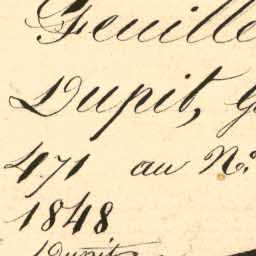 Feuille
Dupit, G
471 au No.
1848
Dupit